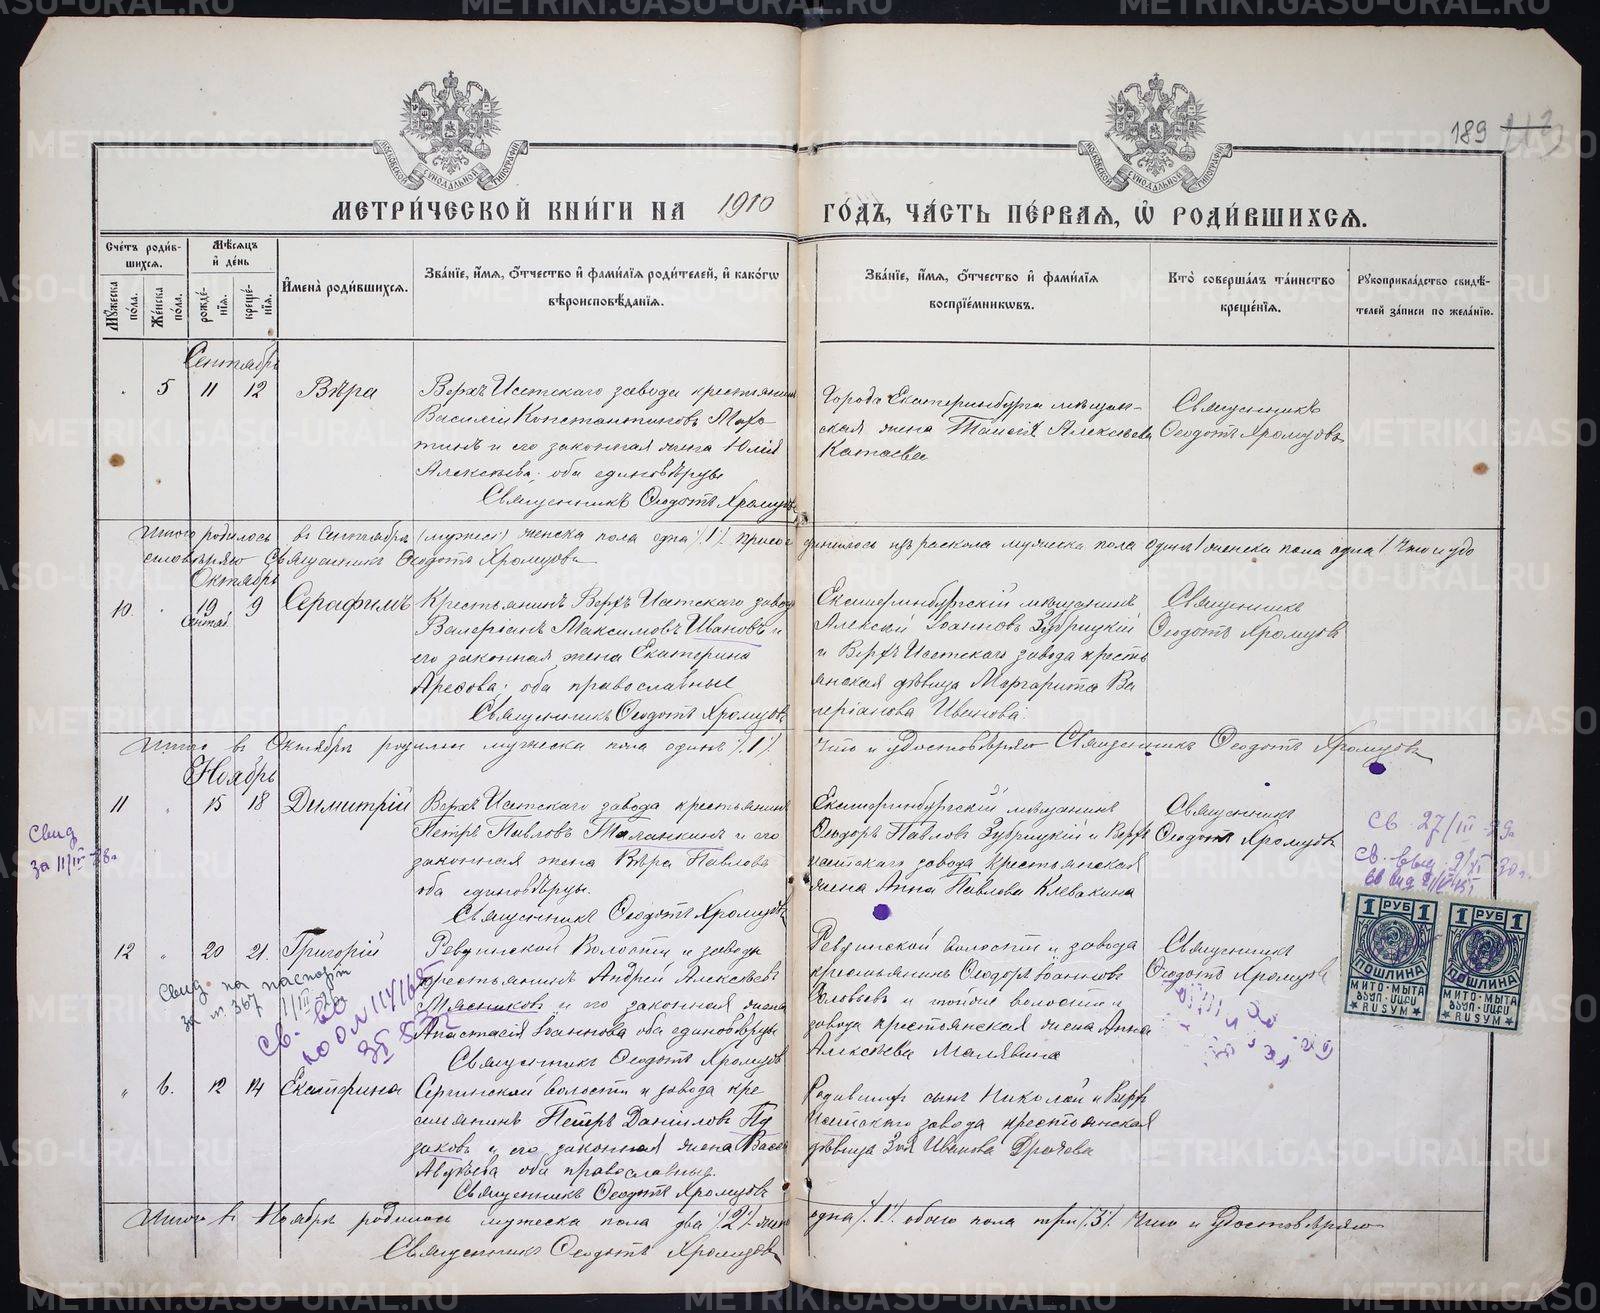 189
МЕТРИЧЕСКОЙ КНИГИ НА 1910 ГОДЪ, ЧАСТЬ ПЕРВАЯ, Ѡ РОДИВШИХСЯ.
Счетъ родившихся.
Мужеска пола.
Женска пола.
Мѣсяцъ и день
рожденія.
крещенія.
Имена родившихся.
Званіе, имя, отчество и фамилія родителей, и какогѡ вѣроисповѣданія.
Званіе, имя, отчество и фамилія воспріемниковъ.
Кто совершалъ таинство крещенія.
Рукоприкладство свидѣтелей записи по желанію.
Сентябрь
5 11 12 Вѣра
Верхъ Исетскаго завода крестьянинъ
Василій Константиновъ Махо
тинъ и его законная жена Юлія
Алексѣева; оба единовѣрцы
Священникъ Ѳеодотъ Хромцовъ
Города Екатеринбурга мѣщан-
ская жена Таисія Алексѣева
Катаева
Священникъ
Ѳеодотъ Хромцовъ
Итого родилось въ Сентябрѣ женска пола одна /1/ присоединилось изъ раскола мужеска пола одинъ женска пола одна Что и удо
стовѣряю Священникъ Ѳеодотъ Хромцовъ
Октябрь
10. 19 Сентяб. 9 Серафимъ
Крестьянинъ Верхъ Исетскаго завода
Валеріанъ Максимовъ Ивановъ и
его законная жена Екатерина
оба православные
Священникъ Ѳеодотъ Хромцовъ
Екатеринбургскій мѣщанинъ
Алексѣй Іоанновъ Зубрицкій
и Верхъ Исетскаго завода кресть
янская дѣвица Маргарита Ва
леріанова Иванова.
Священникъ
Ѳеодотъ Хромцовъ
Итого въ Октябрѣ родилось мужеска пола одинъ /1/ Что и удостовѣряю Священникъ Ѳеодотъ Хромцовъ
Ноябрь
11 15 18 Димитрій
Верхъ Исетскаго завода крестьянинъ
Петръ Павловъ Таланкинъ и его
законная жена Вѣра Павлова
оба единовѣрцы.
Священникъ Ѳеодотъ Хромцовъ
Екатеринбургскій мѣщанинъ
Ѳеодоръ Павловъ Зубрицкій и Верхъ
Исетскаго завода крестьянская
жена Анна Павлова Клевакина
Священникъ
Ѳеодотъ Хромцовъ
12 20 21. Григорій
Ревдинской Волости и завода
крестьянинъ Андрей Алексѣевъ
Мясниковъ и его законная жена
Анастасія Іоаннова оба единовѣрцы
Священникъ Ѳеодотъ Хромцовъ
Ревдинской волости и завода
крестьянинъ Ѳеодоръ Іоанновъ
Соловьевъ и тойже волости и
завода крестьянская жена Анна
Алексѣева Малявина
Священникъ
Ѳеодотъ Хромцовъ
Свид. на паспорт
6. 12 14 Екатерина
Сергинской волости и завода кре
стьянинъ Петръ Даніиловъ Пу
заковъ и его законная жена
оба православные.
Священникъ Ѳеодотъ Хромцовъ
Родившей сынъ Николай и Верхъ
Исетскаго завода крестьянская
дѣвица Зоя Иванова
Итого въ Ноябрѣ родилось мужеска пола два /2/ женск одна /1/ обоего пола три /3/ Что и удостовѣряю
Священникъ Ѳеодотъ Хромцовъ
1 РУБ 1
ПОШЛИНА
МИТО · МЫТА
RUSUM
1 РУБ 1
ПОШЛИНА
МИТО · МЫТА
RUSUM
METRIKI.GASO-URAL.RU